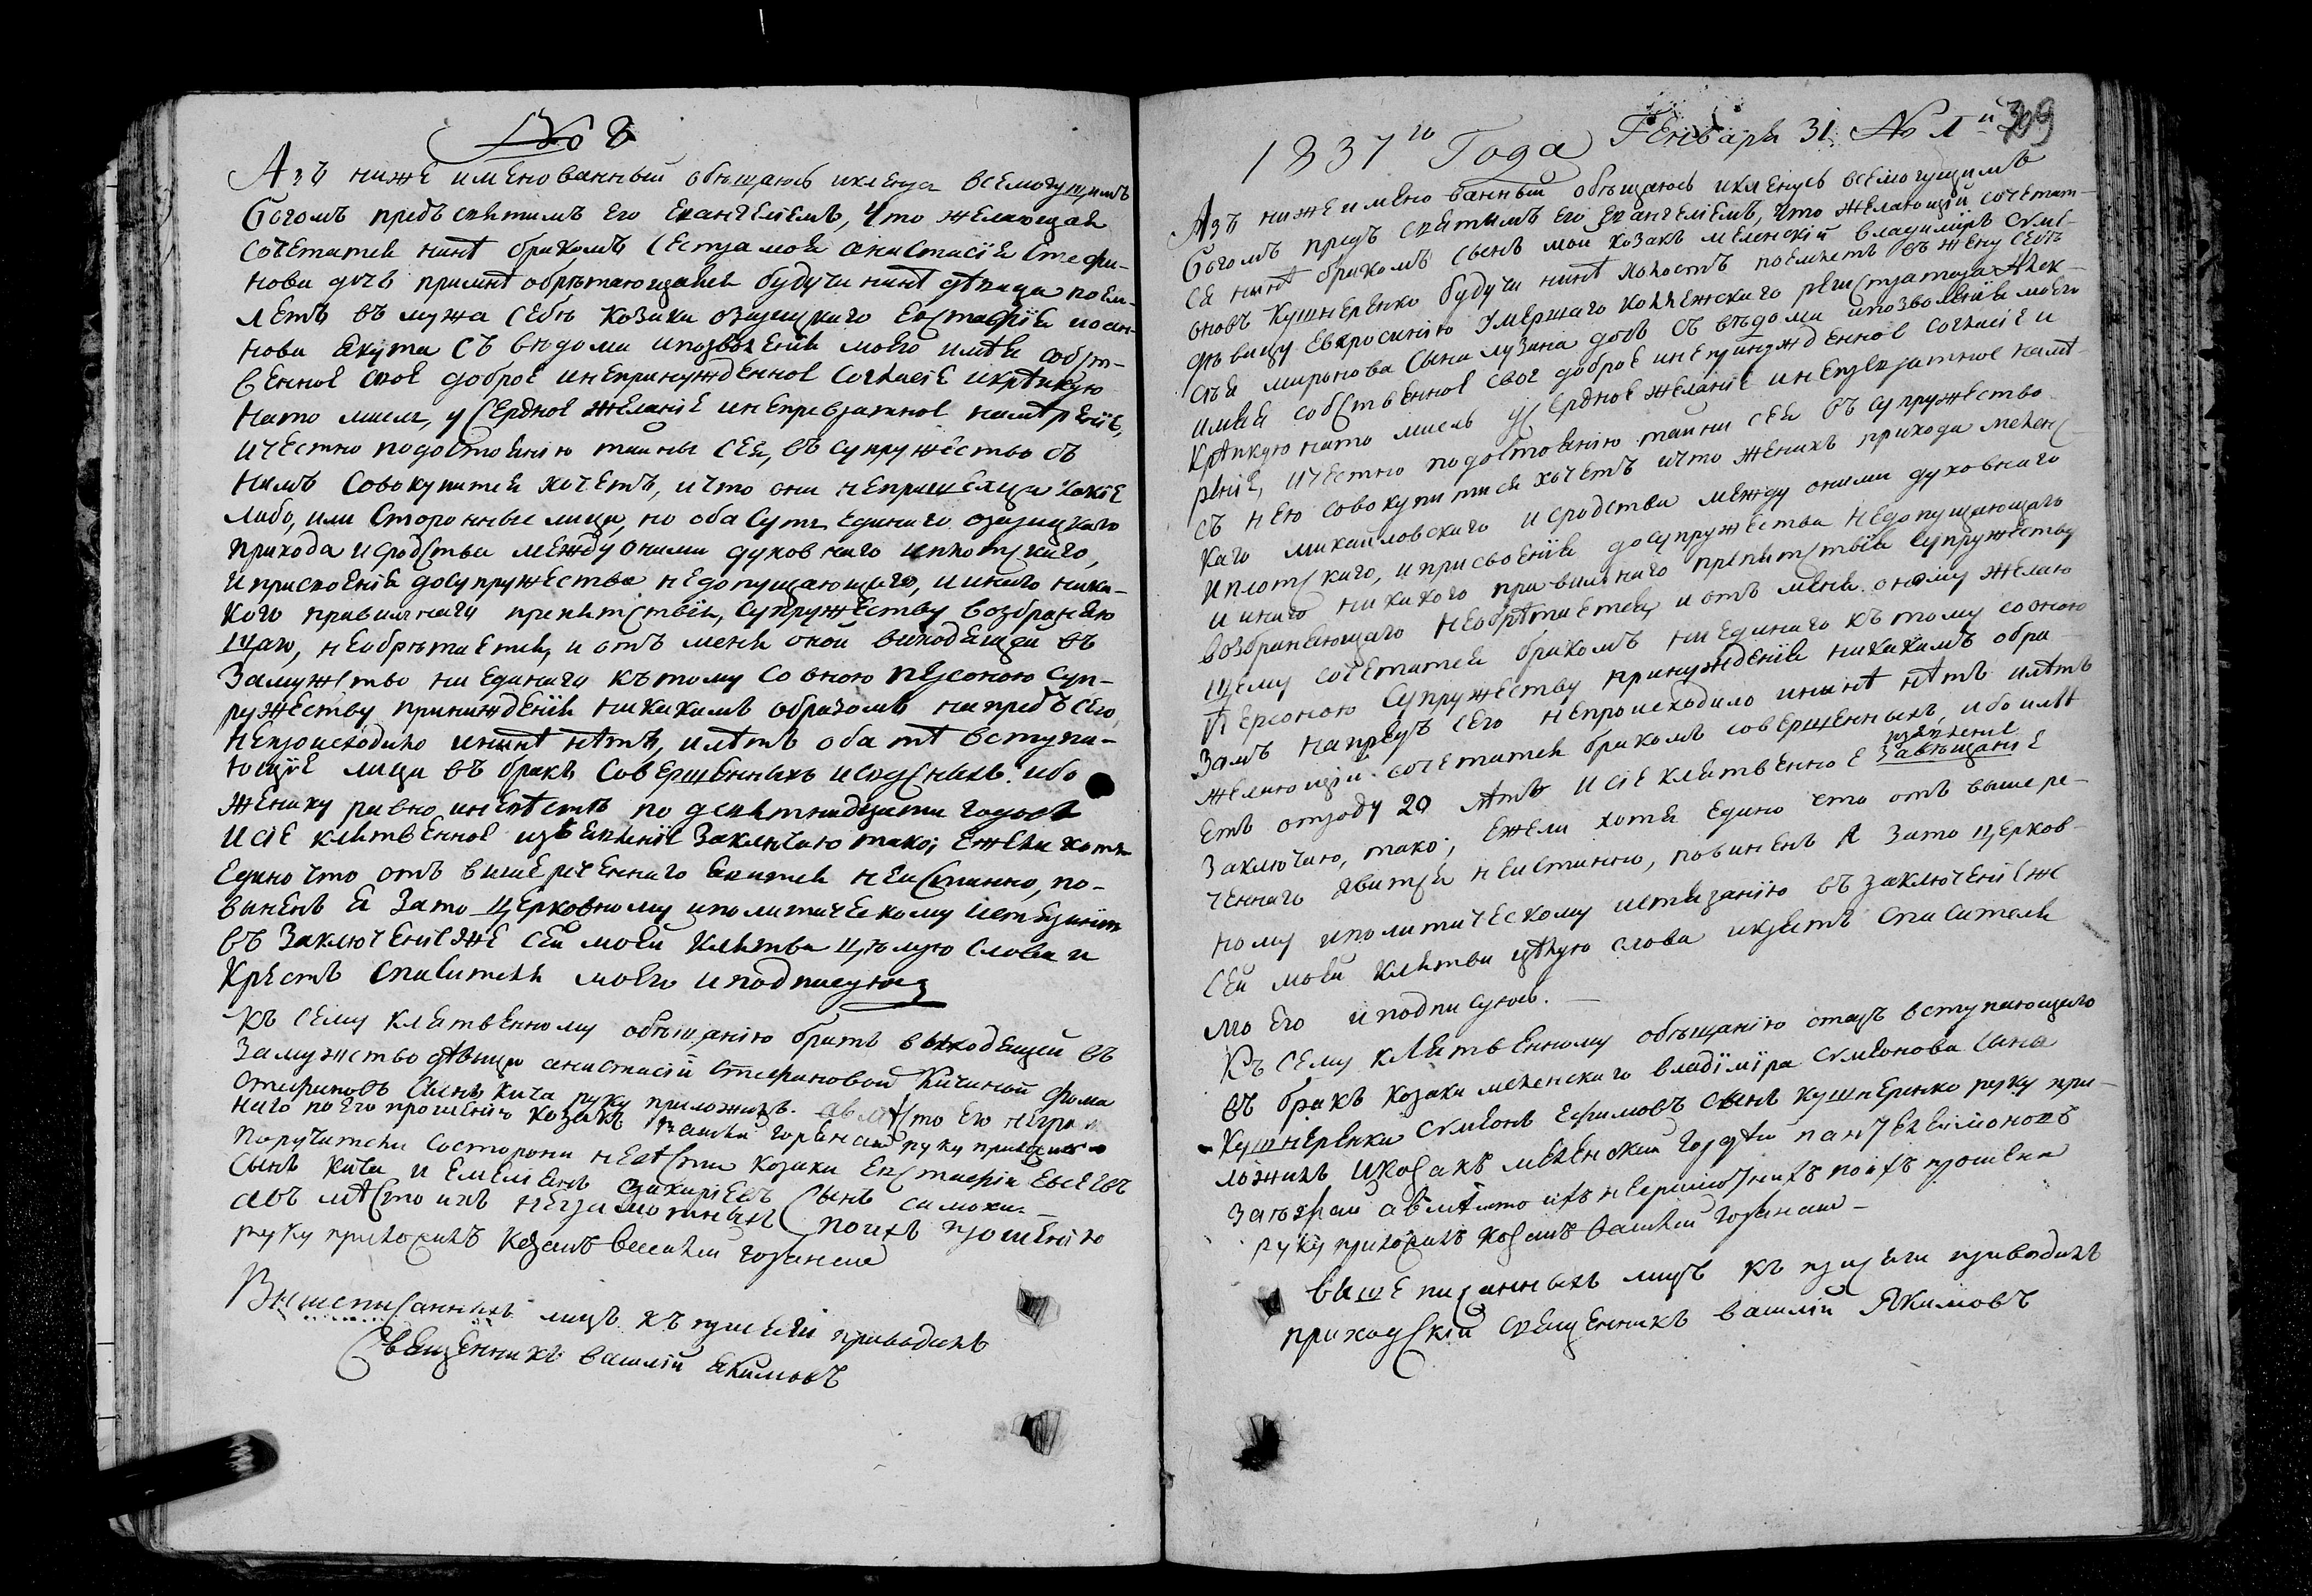 № 8
Азъ ниже именованный обѣщаюсь и кленуся всемогущимъ
Богомъ предъ святимъ его евангелиемъ, что желающая
сочетатися нинѣ бракомъ сестра моя анастасія стефа-
нова дочь кича нинѣ обрѣтающаяся будучи нинѣ дѣвица поем-
летъ въ мужа себѣ козака евстафія иоан-
нова Якута съ вѣдома и позволенія моего имѣя собст-
венное свое доброе и непринужденное согласіе и крѣпкую
на то мисль, усердное желаніе и непревратное намѣреніе,
и честно подостоянію тайны сея, въ супружество съ
нимъ совокупитися хочетъ, и что они непришелци какіе
либо, или сторонные лица, но оба суть единаго
прихода и сродства между оними духовнаго и плотскаго,
и присвоенія до супружества недопущающаго, и инаго ника-
кого правилнаго препятствія, супружеству возбраняю
щаго, необрѣтается, и отъ меня оной виходящей въ
замужство ни единаго къ тому со оною персоною суп-
ружеству принужденія никакимъ образомъ напредъ сего,
непроисходило и нинѣ нѣтъ, и лѣтъ оба тѣ вступа-
ющіе лица въ бракъ совершенныхъ и сходныхъ. ибо
жениху равно и невѣстѣ по девятнадцати годовъ
и сіе клятвенное изъявленіе заключаю тако; ежели хотя
едино что отъ вишереченнаго явится неистинно, по-
виненъ я зато церковному и политическому истязанію
въ заключеніе же сей моей клятви цѣлую слова и
Крестъ спасителя моего и подписуюсь
Къ сему клятвенному обѣщанію братъ выходящей въ
замужство дѣвици анастасіи стефановой Кичиной фома
стефановъ синъ кича руку приложилъ. а вмѣсто его неграмот
наго по его прошенію козакъ василій руку приложилъ
Поручители со сторони невѣсти козаки евстафій евсеевъ
сынъ кича и емеліянъ захаріевъ сынъ
а въ мѣсто ихъ неграмотныхъ по ихъ прошенію
руку приложилъ козакъ василій
Вишеписанныхъ лицъ къ присяги приводилъ
Священникъ василій Якимовъ
1837го Года Генваря 31 № 1й 309
Азъ нижеименованный обѣщаюсь и кленусь всемогущимъ
Богомъ предъ святымъ его евангеліемъ, что желающій сочетат-
ся нинѣ бракомъ сынъ мой козакъ меленскій владиміръ симе-
оновъ Кушнеренко будучи нинѣ холостъ поемлетъ въ жену себѣ
дѣвицу Евфросинію умершаго коллежскаго регистратора Алек-
сѣя миронова сына лузана дочь съ вѣдома и позволенія моего
имѣя собственное свое доброе и непринужденное согласіе и
крѣпкую на то мисль усердное желаніе и непревратное намѣ-
реніе, и честно подостоянію тайни сея въ супружество
съ нею совокупитися хочетъ и что женихъ прихода меленс
каго михайловскаго и сродства между оними духовнаго
и плотскаго, и присвоенія до супружества недопущающаго
и инаго никакого правильнаго препятствія супружеству
возбраняющаго необрѣтается, и отъ меня оному желаю
щему сочетатся бракомъ ни единаго къ тому со оною
Персоною супружеству принужденія никакимъ обра
зомъ напредъ сего непроисходило и нинѣ нѣтъ и лѣтъ
желающій сочетатися бракомъ совершенныхъ, ибо имѣ
етъ отроду 20 лѣтъ и сіе клятвенное завѣщаніе
изявленіе
заключаю, тако; ежели хотя едино что отъ вышере-
ченнаго явится неистинно, повиненъ я зато церков-
ному и политическому истязанію въ заключеніе же
сей моей клятви цѣлую слова и крестъ спасителя
моего и подписуюсь.
Къ сему клятвенному обѣщанію отецъ вступающаго
въ бракъ козака меленскаго владіміра симіонова сина
Кушнеренка симеонъ ефимовъ сынъ кушнеренко руку при-
ложилъ и козакъ меленскій гордѣй пантелеймоновъ
а вмѣсто ихъ неграмотнихъ по ихъ прошению
руку приложилъ козакъ василій
више писанныхъ лицъ къ присяги приводилъ
приходскій священникъ василій Якимовъ